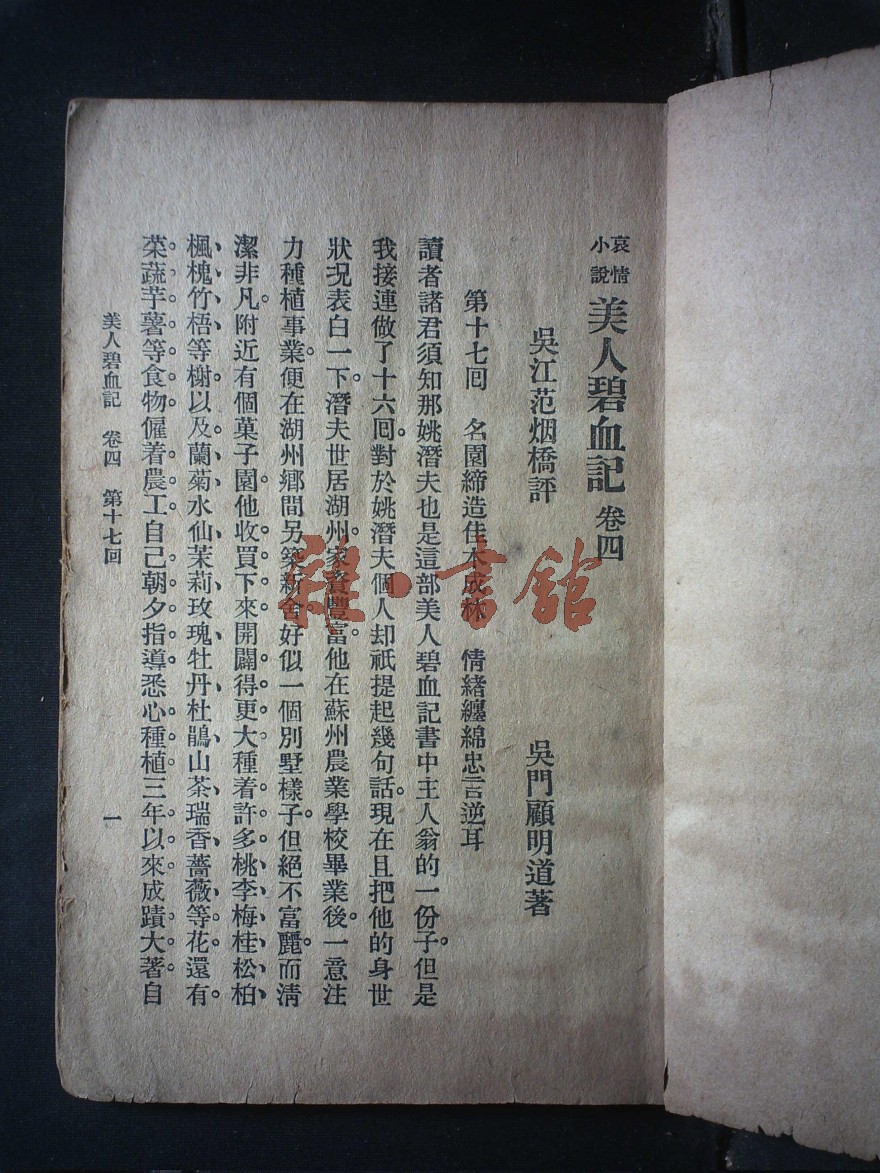 哀情小說 美人碧血記 卷四
吳門顧明道著
吳江范烟橋評
第十七囘 名園締造佳木成林 情緒纏綿忠言逆耳
讀者諸君須知那姚潛夫也是這部美人碧血記書中主人翁的一份子。但是
我接連做了十六囘。對於姚潛夫個人却祇提起幾句話。現在且把他的身世
狀況表白一下。潛夫世居湖州。家資豐富。他在蘇州農業學校畢業後。一意注
力種植事業。便在湖州鄉間另築新舍好似一個別墅樣子。但絕不富麗。而淸
潔非凡。附近有個菓子園他收買下來開闢得更大。種着許多桃、李、梅、桂、松、柏、
楓、槐、竹、梧等樹、以及蘭、菊、水仙、茉莉、玫瑰、牡丹、杜鵑、山茶、瑞香、薔薇等花。還有
菜。蔬。芋。薯。等。食。物。僱。着。農。工。自。己。朝。夕。指。導。悉。心。種。植。三。年。以。來。成。蹟。大。著。自
美人碧血記 卷四 第十七回 一
雜·書館